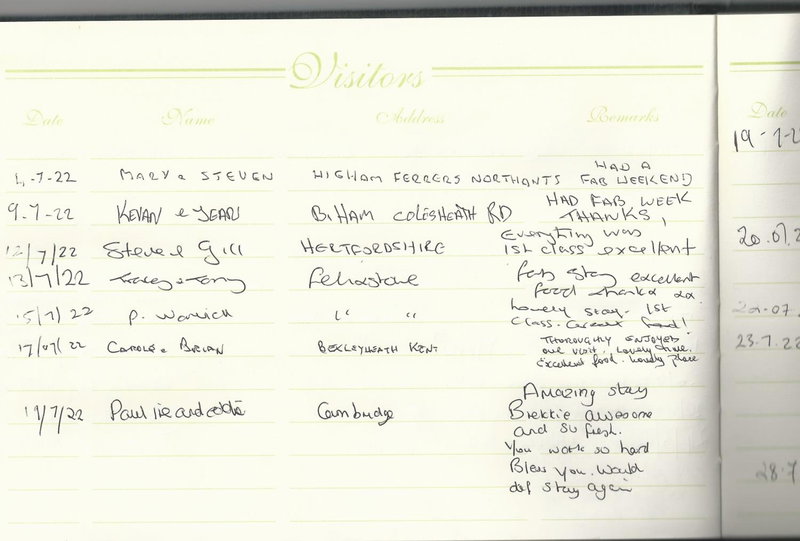 Visitors
Date Name Address Remarks
4-7-22 MARY & STEVEN HIGHAM FERRERS NORTHANTS HAD A
FAB WEEKEND
9-7-22 KEVAN & JEAN COLESHEATH RD HAD FAB WEEK
THANKS,
12/7/22 Steve & Gill HERTFORDSHIRE Everything was
1st class excellent
13/7/22 Tracey & Tony Felixstowe fab stay excellent
food thanks xx
15/7/22 P. Warwick " " Lovely stay. 1st
class. Great food!
17/07/22 CAROLE & BRIAN BEXLEYHEATH KENT THOROUGHLY ENJOYED
our visit, Lovely time.
Excellent food. Lovely place
19/7/22 Paul and Cambridge Amazing stay
Brekkie awesome
and so fresh.
You work so hard
Bless you. Would
def stay again
Date
19-7-2
20.07.2
22-07.
23.7.22
28.7